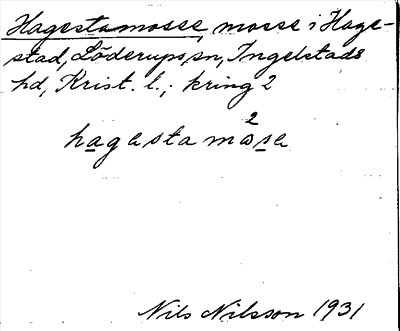 Hagestamosse, mosse i Hage-
stad, Löderups sn, Ingelstads
hd, Krist. l.; kring 2
2
hagestamosa
Nils Nilsson 1931